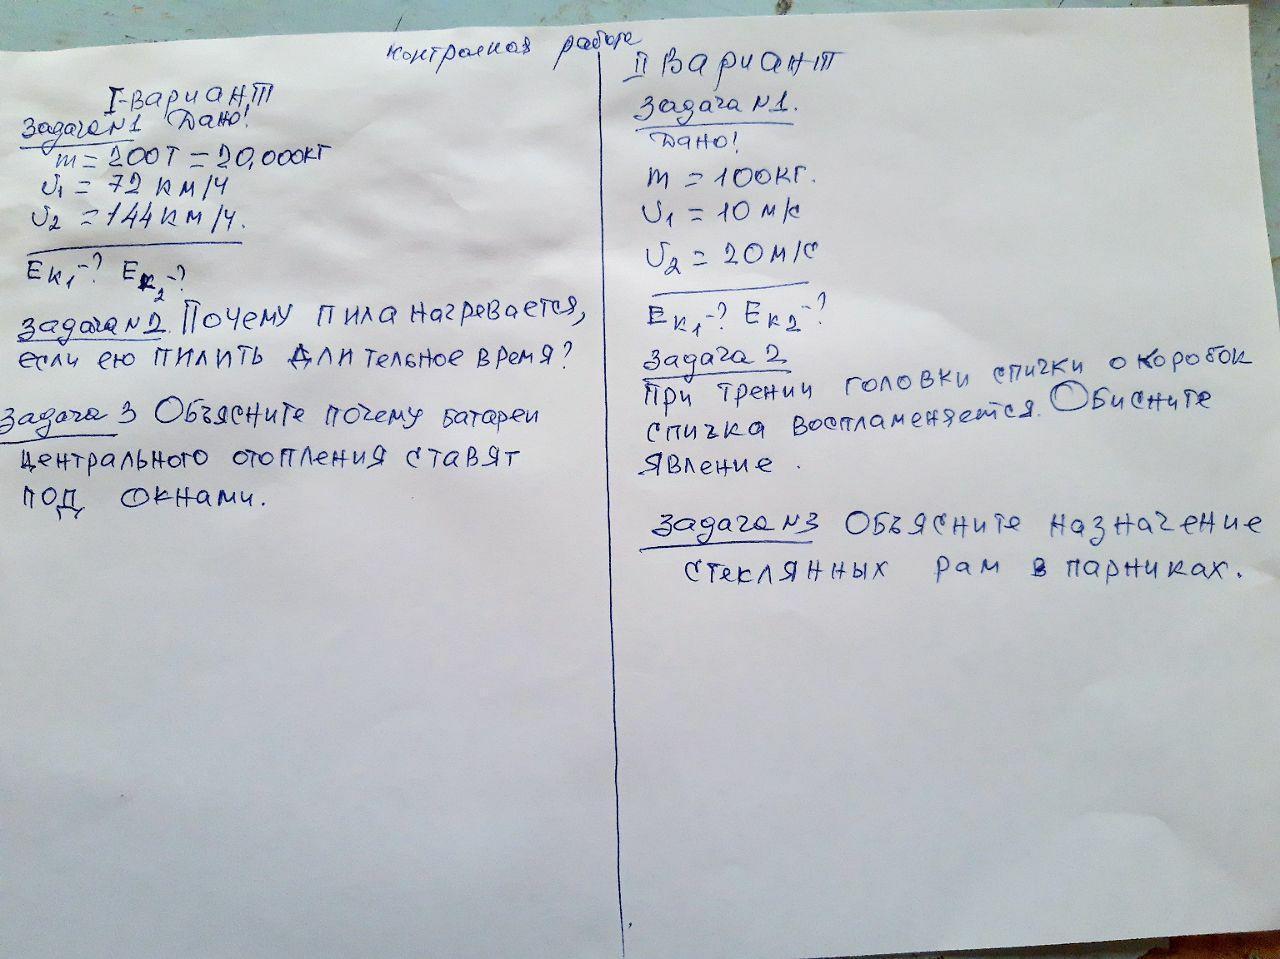 контролная работа
I-вариант
Задача №1 Дано!
m = 200т = 20,000кг
υ₁ = 72 км/ч
υ₂ = 144км/ч.
Eк₁-? Eк₂-?
Задача №2. Почему пила нагревается,
если ею пилить длительное время?
Задача 3 Объясните почему батареи
центрального отопления ставят
под окнами.
II Вариант
Задача №1.
Дано!
m = 100кг.
υ₁ = 10 м/с
υ₂ = 20м/с
Eк₁-? Eк₂-?
Задача 2
При трении головки спички о коробок
спичка воспламеняется. Обисните
явление.
Задача №3 Объясните назначение
стеклянных рам в парниках.